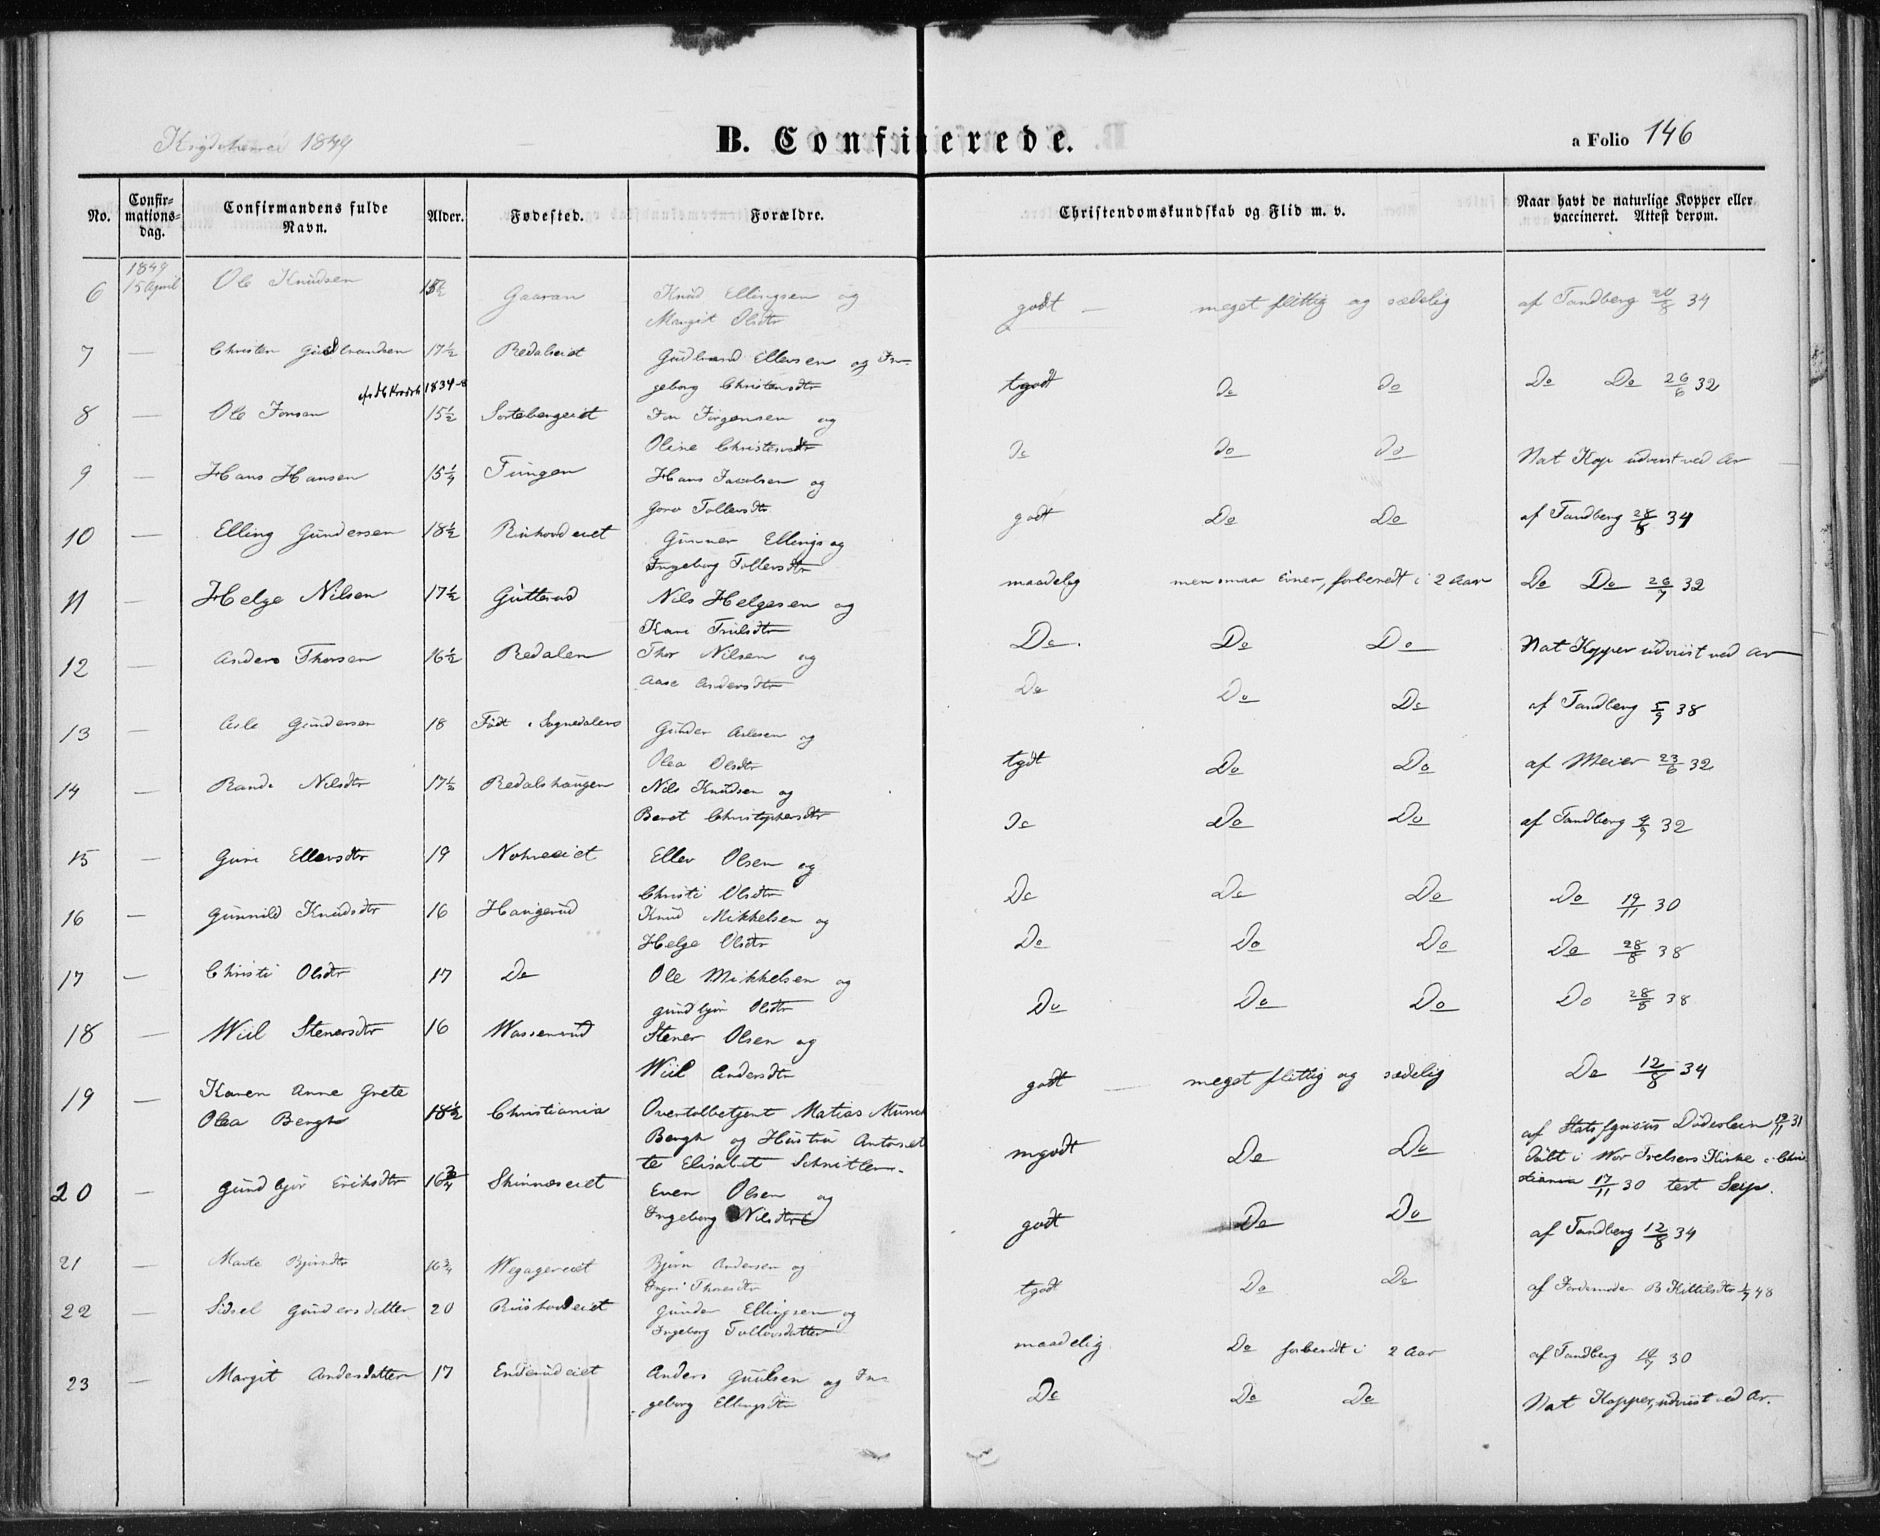 1849
B. Confirmerede.
a Folio 146
No.
Confirmationsdag.
Confirmandens fulde Navn.
Alder.
Fødested.
Forældre.
Christendomskundskab og Flid m. v.
Naar havt de naturlige Kopper eller vaccineret. Attest derom.
1849
6 15 April Ole Knudsen 15½ Gaaran Knud Ellingsen og godt — meget flittig og sædelig af Tandberg 34
Margit Olsdtr
7 — Christen Gudbrandsen 17½ Redalseiet Gudbrand Ellevsen og In-
geborg Christensdtr tgodt Do Do Do Do 26/6 32
1834
8 — Ole Jonsen 15½ Sortebergeiet Jon Jørgensen og
Oline Christensdtr Do Do Do Nat Kop udviist ved Ar
9 — Hans Hansen 15¼ Tungen Hans Jacobsen og
Goro Tollersdtr godt Do Do af Tandberg 28/8 34
10 — Elling Gundersen 18½ eiet Gunner Ellings og
Ingeborg Tollersdtr maadelig men smaa Evner, forberedt i 2 Aar Do Do 26/9 32
11 — Helge Nilsen 17½ Gutterud Nils Helgesen og
Kari Trulsdtr Do. Do Do Nat Kopper udviist ved Ar
12 — Anders Thorsen 16½ Redalen Thor Nilsen og
Aase Andersdtr Do Do Do af Tandberg 5/9 38
13 — Asle Gundersen 18 Født i Sognedalens Gunder Aslesen og
Olea Olsdtr tgdt Do Do af Meier 23/6 32
14 — Randi Nilsdtr 17½ Redalshaugen Nils Knudsen og
Berot Christophersdtr Do Do Do af Tandberg 32
15 — Guri Ellevsdtr 19 Nohreeiet Ellev Olsen og
Christi Olsdtr Do Do Do Do 19/11 30
16 — Gunnild Knudsdtr 16 Haugerud Knud Mikkelsen og
Helge Olsdtr Do Do Do Do 28/8 38
17 — Christi Olsdtr 17 Do Ole Mikkelsen og
Gundbjør Olsdtr Do Do Do Do 28/8 38
18 — Wiil Stenersdtr 16 Wassenrud Stener Olsen og
Wiil Andersdtr godt — meget flittig og sædelig Do 12/8 34
19 — Karen Anne Grete
Olea Bergh 18½ Christiania Overtolbetjent Matias Munch
Bergh og Hustru Antonet
te Elisabet Schnitler. mgodt Do Do af Stats 31
Døbt i Vor Frelsers Kirke i Chri
stiania 17/11 30 test
20 — Gundbjør Eriksdtr 16¾ Skinnæseiet Even Olsen og
Ingeborg Nilsdtr godt Do Do af Tandberg 12/8 34
21 — Marte Bjørnsdtr 16¾ Bjørn Andersen og
Ingri Thoresdtr tgodt Do Do af Jordemoder B Kittilsdtr 48
22 — Sidsel Gundersdatter 20 eiet Gunder Ellingsen og
Ingeborg Tollevsdatter maadelig Do forberedt i 2 Aar af Tandberg 30
23 — Margit Andersdatter 17 Enderudeiet Anders Guulsen og In-
geborg Ellingsdtr Do Do Do Nat Kopper, udviist ved Ar.